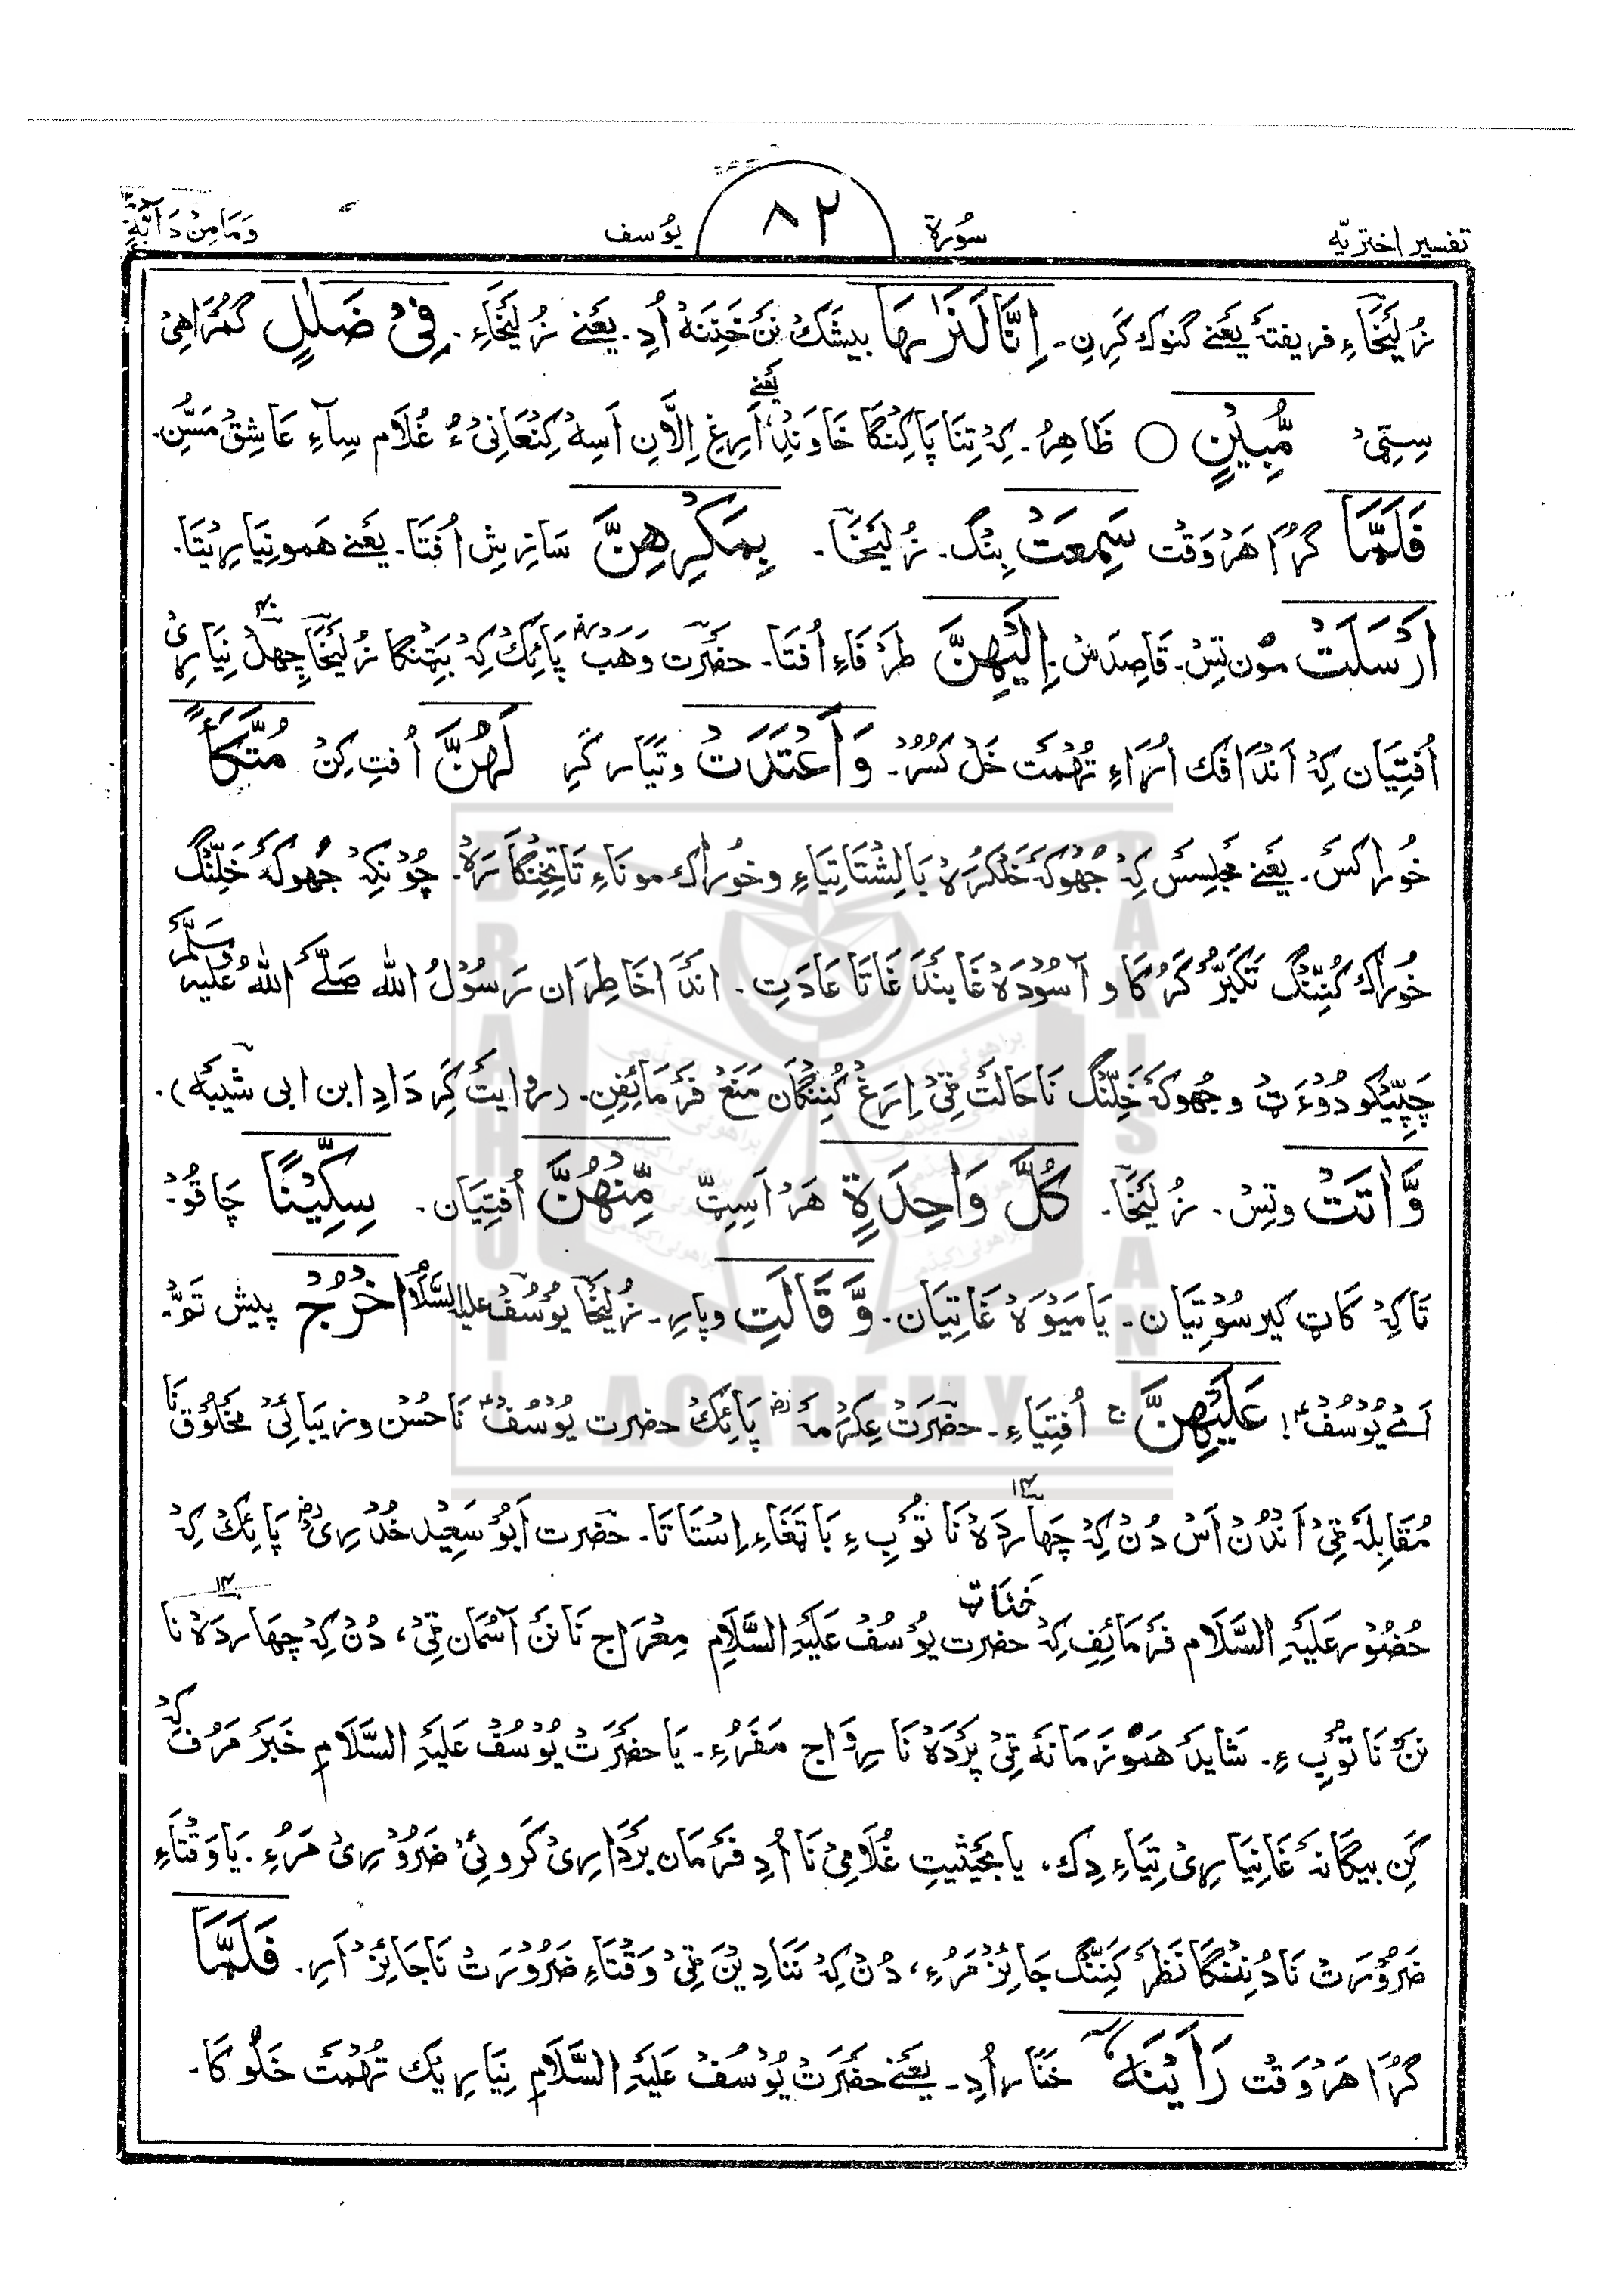 تفسیر اختریّه
سُورة
۸۲
یُوسف
وَمَا مِنْ دَآبَّةٍ ۱۲
زُلَیْخَاءِ فریفتہَ یَعْنے گنوک کَرِن۔ اِنَّا لَنَرٰىهَا بیشَکْ نَنْ خَنِنَهْ اُدِ۔ یَعْنے زُلَیْخَاءِ۔ فِیْ ضَلٰلٍ گُمْرَاهِیْ
سِتِیْ مُّبِیْنٍ ○ ظَاهِرُ۔ کِہْ تِنَا پَاکِنْگَا خَاوَنْدِ یَعْنے اَرِغِ اِلَّانِ اَسِہْ کِنْعَانِیْ ءُ غُلَام سِاءِ عَاشِقْ مَسُّنِ۔
فَلَمَّا گُرَا هَرْوَقْت سَمِعَتْ بِنْگ۔ زُلَیْخَا۔ بِمَكْرِهِنَّ سَازِشِ اُفْتَا۔ یَعْنے هَمونِیَارِیْتَا۔
اَرْسَلَتْ مُوْن تِسْ۔ قَاصِدَسْ۔ اِلَیْهِنَّ طَرْفَاءِ اُفْتَا۔ حَضْرَت وَهَب رض پَائِکْ کِہْ بِتِنْگَا زُلَیْخَا چِهَلْ نِیَارِیْ ۴۰
اُفْتِیَان کِہْ اَنْدَافَک اُرَاءِ تُهْمَت خَلْ کُسُرْ۔ وَاَعْتَدَتْ وتَیَّار کَرِ لَهُنَّ اُفتِ کِنْ مُتَّكَاً
خُوْرَاکَسَ۔ یَعْنے مَجْلِسَسْ کِہْ جُهوکَہَ خَلْکُرَہْ یَا لِشْتَاتِیَاءِ وخُوْرَاک مونَاءِ تَاتِخِنْگَارَہْ۔ چُوْنکِہْ جُهوکَہَ خَلِّنْگ
خُوْرَاک کُنِنْگ تَکَبُّرْ کَرُکَا و آسُودَہْ غَا بَنْدَغَاتَا عَادَتِ۔ اَنْدَا خَاطِرَان رَسُوْلُ الله صَلَّے اللهُ عَلَیْهِ وَسَلَّمَ
چَپِّیْکو دُوْءَتْ و جُهوکَہَ خَلِّنْگ نَا حَالَتْ ٹِیْ اِرَغْ کُنِنْگَان مَنَعْ فَرْمَائِفِنِ۔ (رِوَایَتْ کَرِ دَادِ ابن ابی شَیْبَه)۔
وَّاٰتَتْ وتِسْ۔ زُلَیْخَا۔ كُلَّ وَاحِدَةٍ هَرْ اَسِٹ مِّنْهُنَّ اُفْتِیَان۔ سِكِّیْنًا چَاقُوْ۔
تَاکِہْ کَاٹ کیر سُوْتِیَان۔ یَا مَیْوَہْ غَاتِیَان۔ وَّ قَالَتِ وپار۔ زُلَیْخَا یُوْسُفْ عَلَیْهِ السَّلَام اخْرُجْ پیش تَمَّ۔
اَے یُوْسُفْ! عَلَیْهِنَّ ج اُفْتِیَاءِ۔ حَضْرَتْ عِکْرَمَہْ رض پَائِکْ حضرت یُوْسُفْ نَا حُسْن و زیبَائِیْ مَخْلُوْق نَا
مُقَابِلَہْ ٹِیْ اَنْدُنْ اَسْ دُنْ کِہْ چَهارْدَہْ نَا تُوْبِ ءِ بَاتَغَاءِ اِسْتَاتَا۔ حَضْرت اَبُوْ سَعِیْد خُدْرِیْ رض پَائِکْ کِہْ ۱۴
حُضُوْر عَلَیْهِ السَّلَام فَرْمَائِفِ کِہْ خَنَاٹ حضرت یُوْسُفْ عَلَیْهِ السَّلَامِ مِعْرَاج نَا نَنْ آسْمَان ٹِیْ، دُنْ کِہْ چَهارْدَہْ نَا ۱۴
نَنْ نَا تُوْبِ ءِ۔ شَایَدْ هَمُوْ زَمَانَہْ ٹِیْ پَرْدَہْ نَا رِوَاج مَفَرُءِ۔ یَا حَضْرَتْ یُوْسُفْ عَلَیْهِ السَّلَامِ خَبَرْ مَرُفْ کِہْ
کَنِ بیگَانَہَ غَانِیَارِیْ تِیَاءِ دِک، یا بحَیْثِیت غُلَامِیْ نَا اُدِ فَرْمَان بَرْدَارِیْ کَرُوئِیْ ضَرُوْرِیْ مَرُءِ۔ یَا وَقْتَاءِ
ضَرُوْرَتْ نَا دُنِنْگَا نَظَرْ کَنِنْگ جَائِزْ مَرُءِ، دُنْ کِہْ نَنَا دِیْن ٹِیْ وَقْتَاءِ ضَرُوْرَتْ نَا جَائِزْ اَرِ۔ فَلَمَّا
گُرَا هَرْوَقْت رَاَیْنَهٗۤ خَنَار اُدِ۔ یَعْنے حَضْرَتْ یُوْسُفْ عَلَیْهِ السَّلَامِ نِیَارِیْک تُهْمَتْ خَلُوکَا۔
BRAHUI
ACADEMY
PAKISTAN